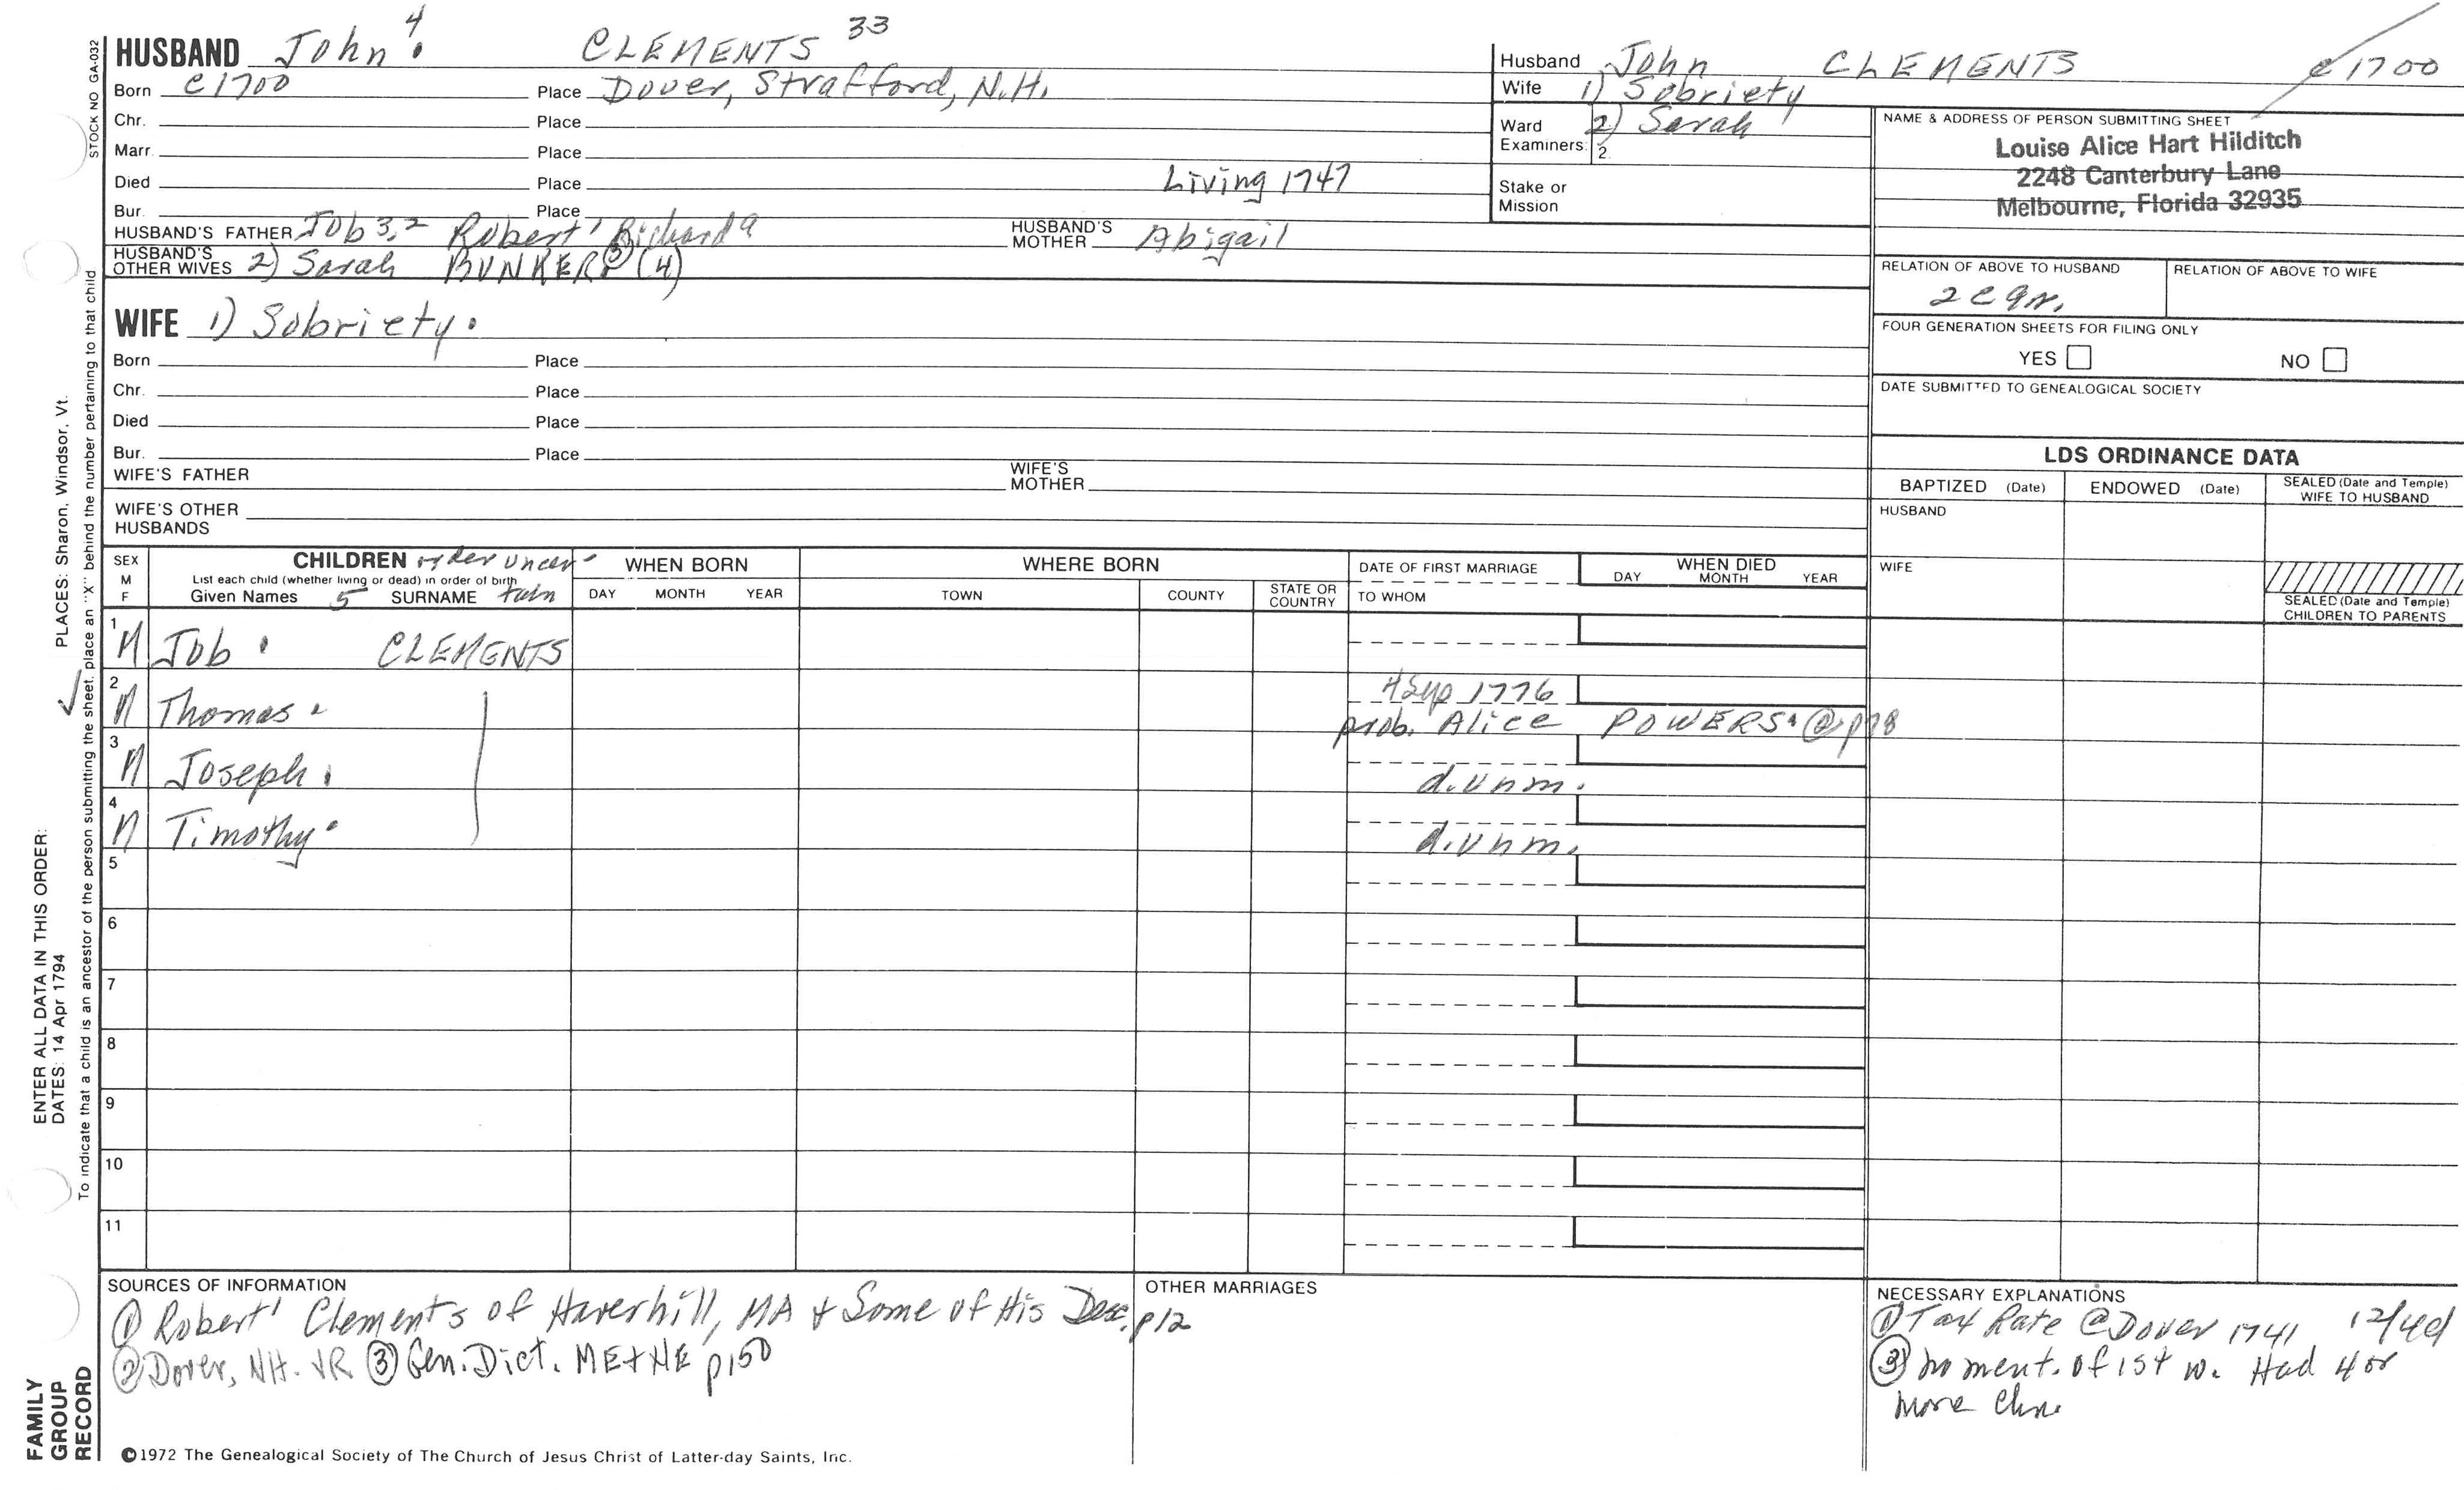 HUSBAND John 4 CLEMENTS 33
Born c1700 Place Dover, Strafford, N.H.
Chr. Place
Marr. Place
Died Place Living 1747
Bur. Place
HUSBAND'S FATHER Job 3, 2 Robert 1 Richard a HUSBAND'S MOTHER Abigail
HUSBAND'S OTHER WIVES 2) Sarah BUNKER (3) (4)
WIFE 1) Sobriety.
Born Place
Chr. Place
Died Place
Bur. Place
WIFE'S FATHER WIFE'S MOTHER
WIFE'S OTHER HUSBANDS
Husband John CLEMENTS c1700
Wife 1) Sobriety
Ward 2) Sarah
Examiners: 2.
Stake or Mission
NAME & ADDRESS OF PERSON SUBMITTING SHEET
Louise Alice Hart Hilditch
2248 Canterbury Lane
Melbourne, Florida 32935
RELATION OF ABOVE TO HUSBAND RELATION OF ABOVE TO WIFE
2c9r.
FOUR GENERATION SHEETS FOR FILING ONLY
YES NO
DATE SUBMITTED TO GENEALOGICAL SOCIETY
LDS ORDINANCE DATA
BAPTIZED (Date) ENDOWED (Date) SEALED (Date and Temple) WIFE TO HUSBAND
HUSBAND
WIFE
SEALED (Date and Temple) CHILDREN TO PARENTS
SEX M F
CHILDREN order uncertain
List each child (whether living or dead) in order of birth
Given Names 5 SURNAME
WHEN BORN
DAY MONTH YEAR
WHERE BORN
TOWN COUNTY STATE OR COUNTRY
DATE OF FIRST MARRIAGE
TO WHOM
WHEN DIED
DAY MONTH YEAR
1 M Job. CLEMENTS
2 M Thomas. 4Sep 1776
prob. Alice POWERS. @ p78
3 M Joseph. d.unm.
4 M Timothy. d.unm.
5
6
7
8
9
10
11
SOURCES OF INFORMATION
① Robert 1 Clements of Haverhill, MA + Some of His Desc. p12
② Dover, NH. VR ③ Gen. Dict. ME+NE p150
OTHER MARRIAGES
NECESSARY EXPLANATIONS
① Tax Rate @ Dover 1741 12/4d
③ no ment. of 1st w. Had 4 or
more chn.
©1972 The Genealogical Society of The Church of Jesus Christ of Latter-day Saints, Inc.
STOCK NO GA-032
To indicate that a child is an ancestor of the person submitting the sheet, place an "X" behind the number pertaining to that child
PLACES: Sharon, Windsor, Vt.
ENTER ALL DATA IN THIS ORDER:
DATES: 14 Apr 1794
FAMILY GROUP RECORD